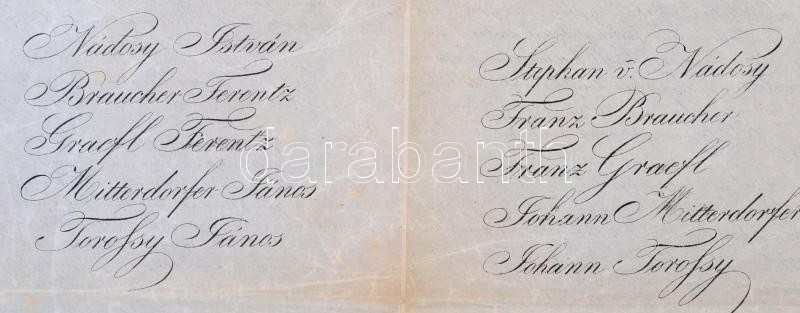 Nádosy István
Braucher Ferentz
Graefl Ferentz
Mitterdorfer János
Torossy János
Stephan v. Nádosy
Franz Braucher
Franz Graefl
Johann Mitterdorfer
Johann Torossy
darabanth